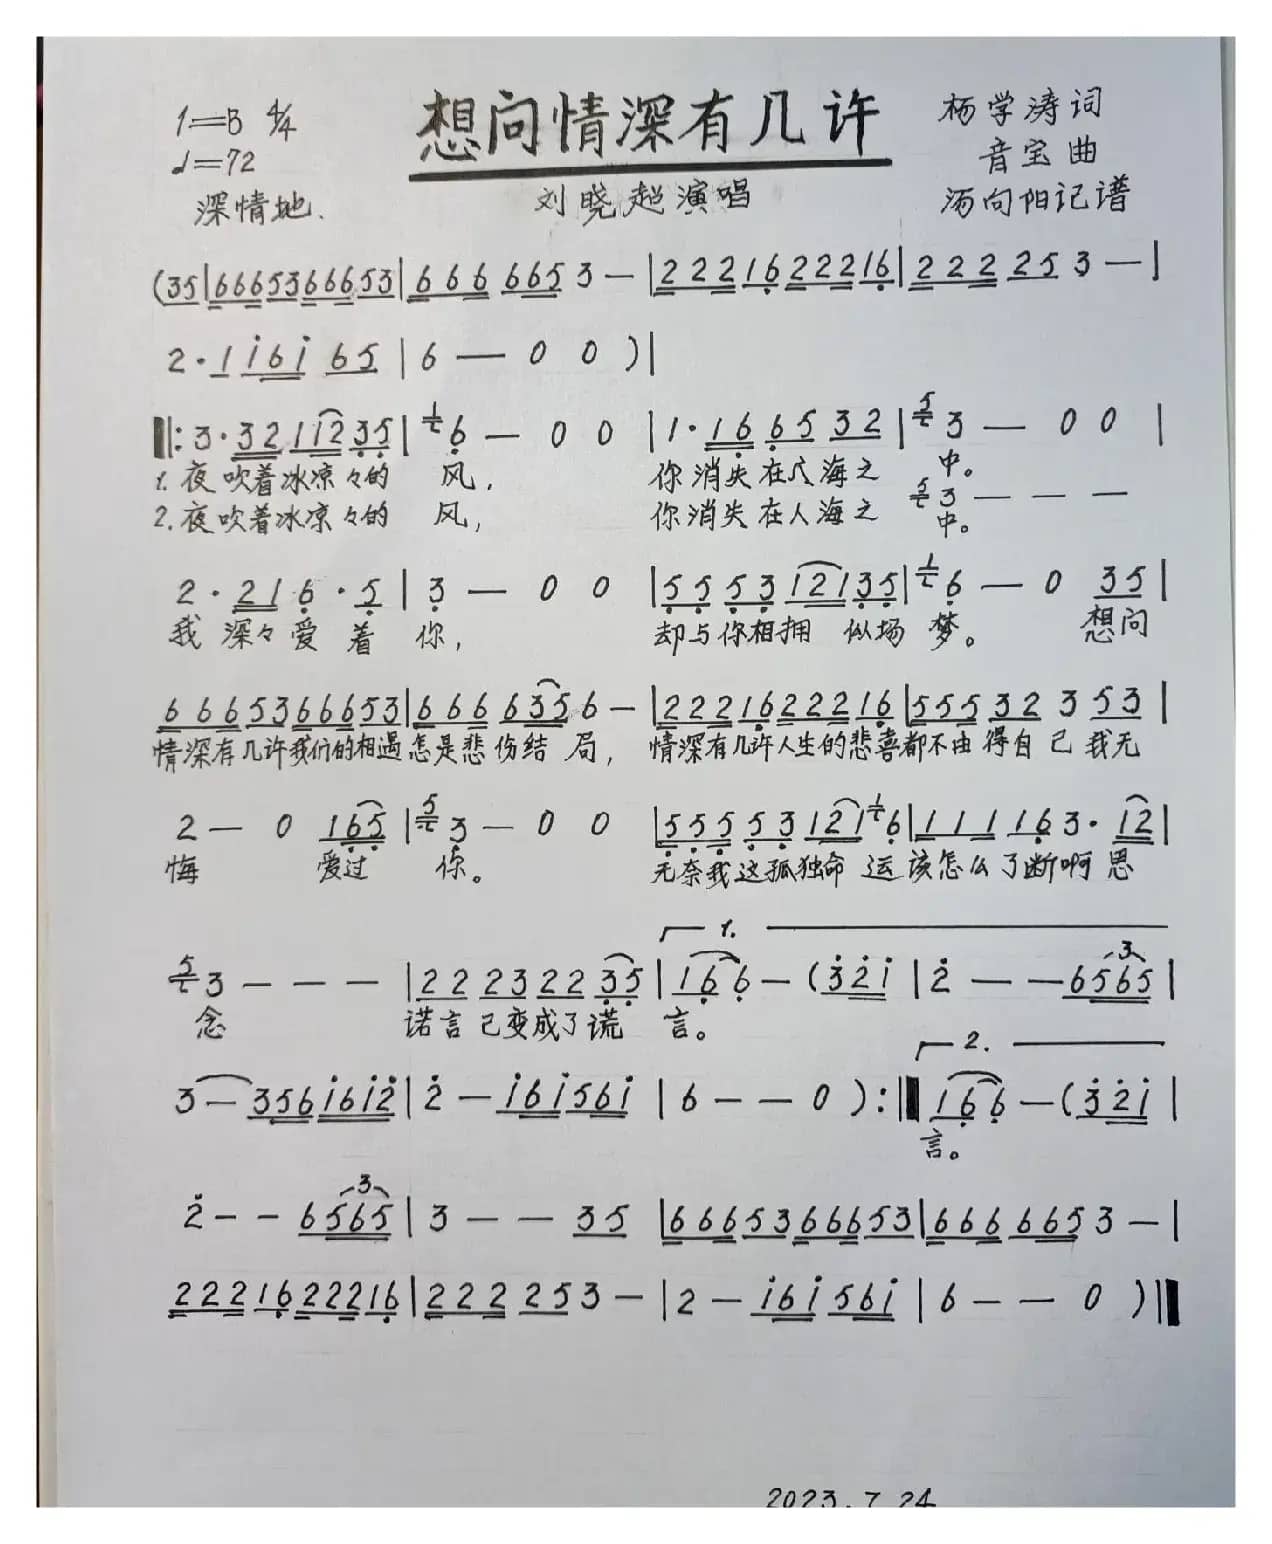 1=B 4/4
想问情深有几许
杨学涛词
♩=72
音宝曲
深情地.
刘晓超演唱
汤向阳记谱
(35|6665366653|666 665 3 —|2221622216|222 25 3 —|
2·1i6i 65|6 — 0 0)|
‖:3·321i235|6 — 0 0|1·166532|3 — 0 0|
1.夜吹着冰凉々的 风, 你消失在人海之 中。
3 — — —
2.夜吹着冰凉々的 风, 你消失在人海之 中。
2·216·5|3 — 0 0|555312135|6 — 0 35|
我深々爱着 你, 却与你相拥 似场 梦。 想问
6665366653|666 635 6 —|2221622216|555 32 3 53|
情深有几许我们的相遇怎是悲伤结 局, 情深有几许人生的悲喜都不由得自己 我无
2 — 0 165|3 — 0 0|555531216|111163·12|
悔 爱过 你。 无奈我这孤独命 运该怎么了断啊思
1.
3 — — —|2223 22 35|166 — (32i|2 — — 6565|
念 诺言已变成了谎 言。
2.
3 — 356i6i2|2 — i6i56i|6 — — 0):‖166 — (32i|
言。
2 — — 6565|3 — — 35|6665366653|666 665 3 —|
2221622216|222 25 3 —|2 — i6i 56i|6 — — 0)‖
2023.7.24